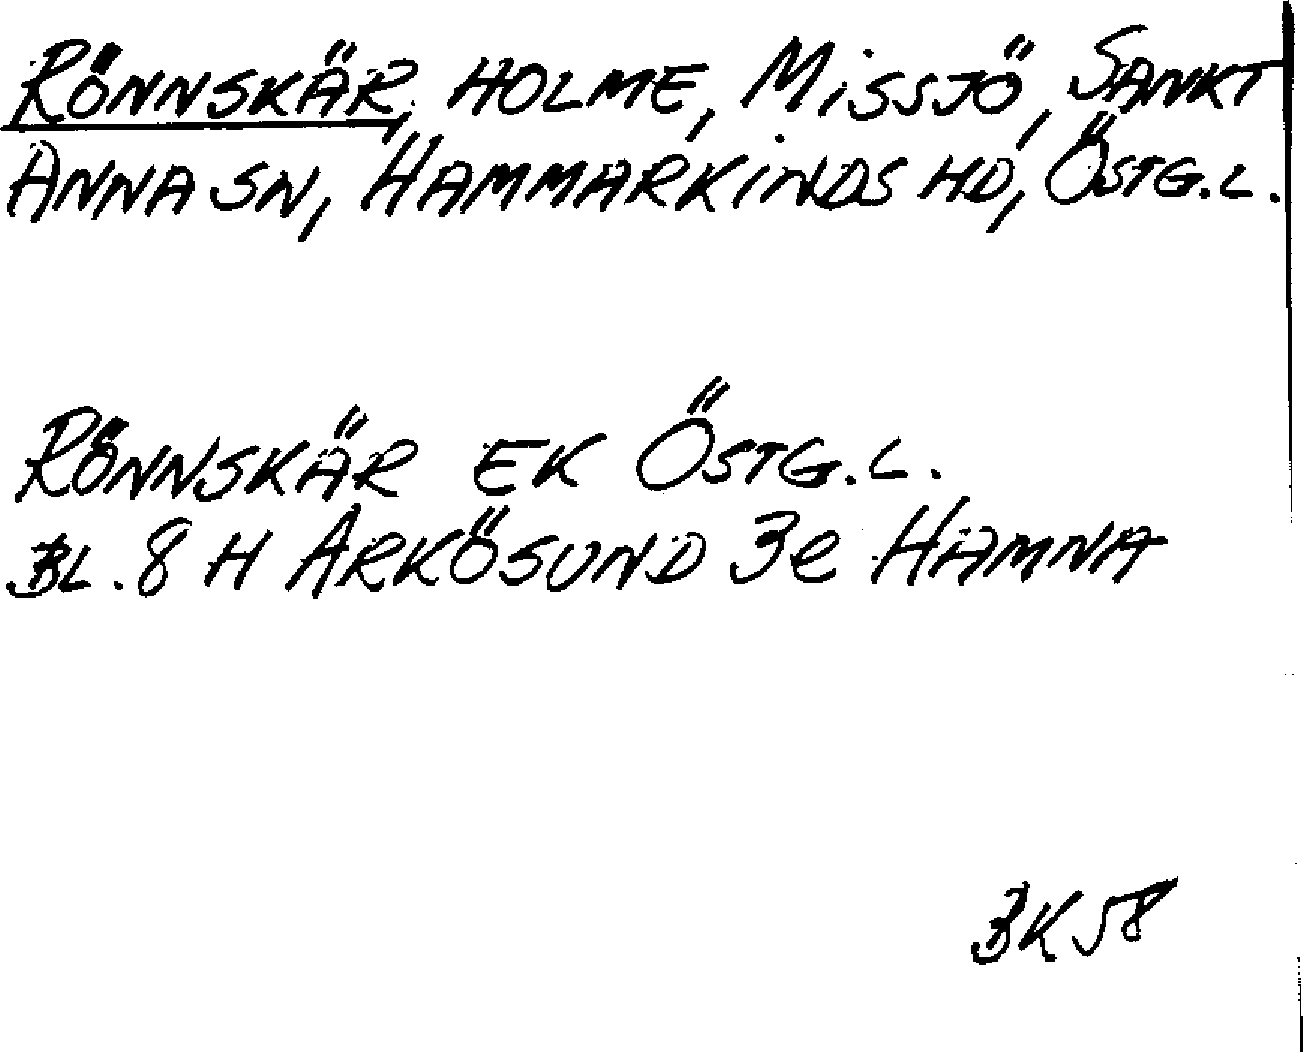 RÖNNSKÄR, HOLME, MISSJÖ, SANKT
ANNA SN, HAMMARKINDS HD, ÖSTG.L.
RÖNNSKÄR EK ÖSTG.L.
BL. 8 H ARKÖSUND 3e HAMNA
BK 58